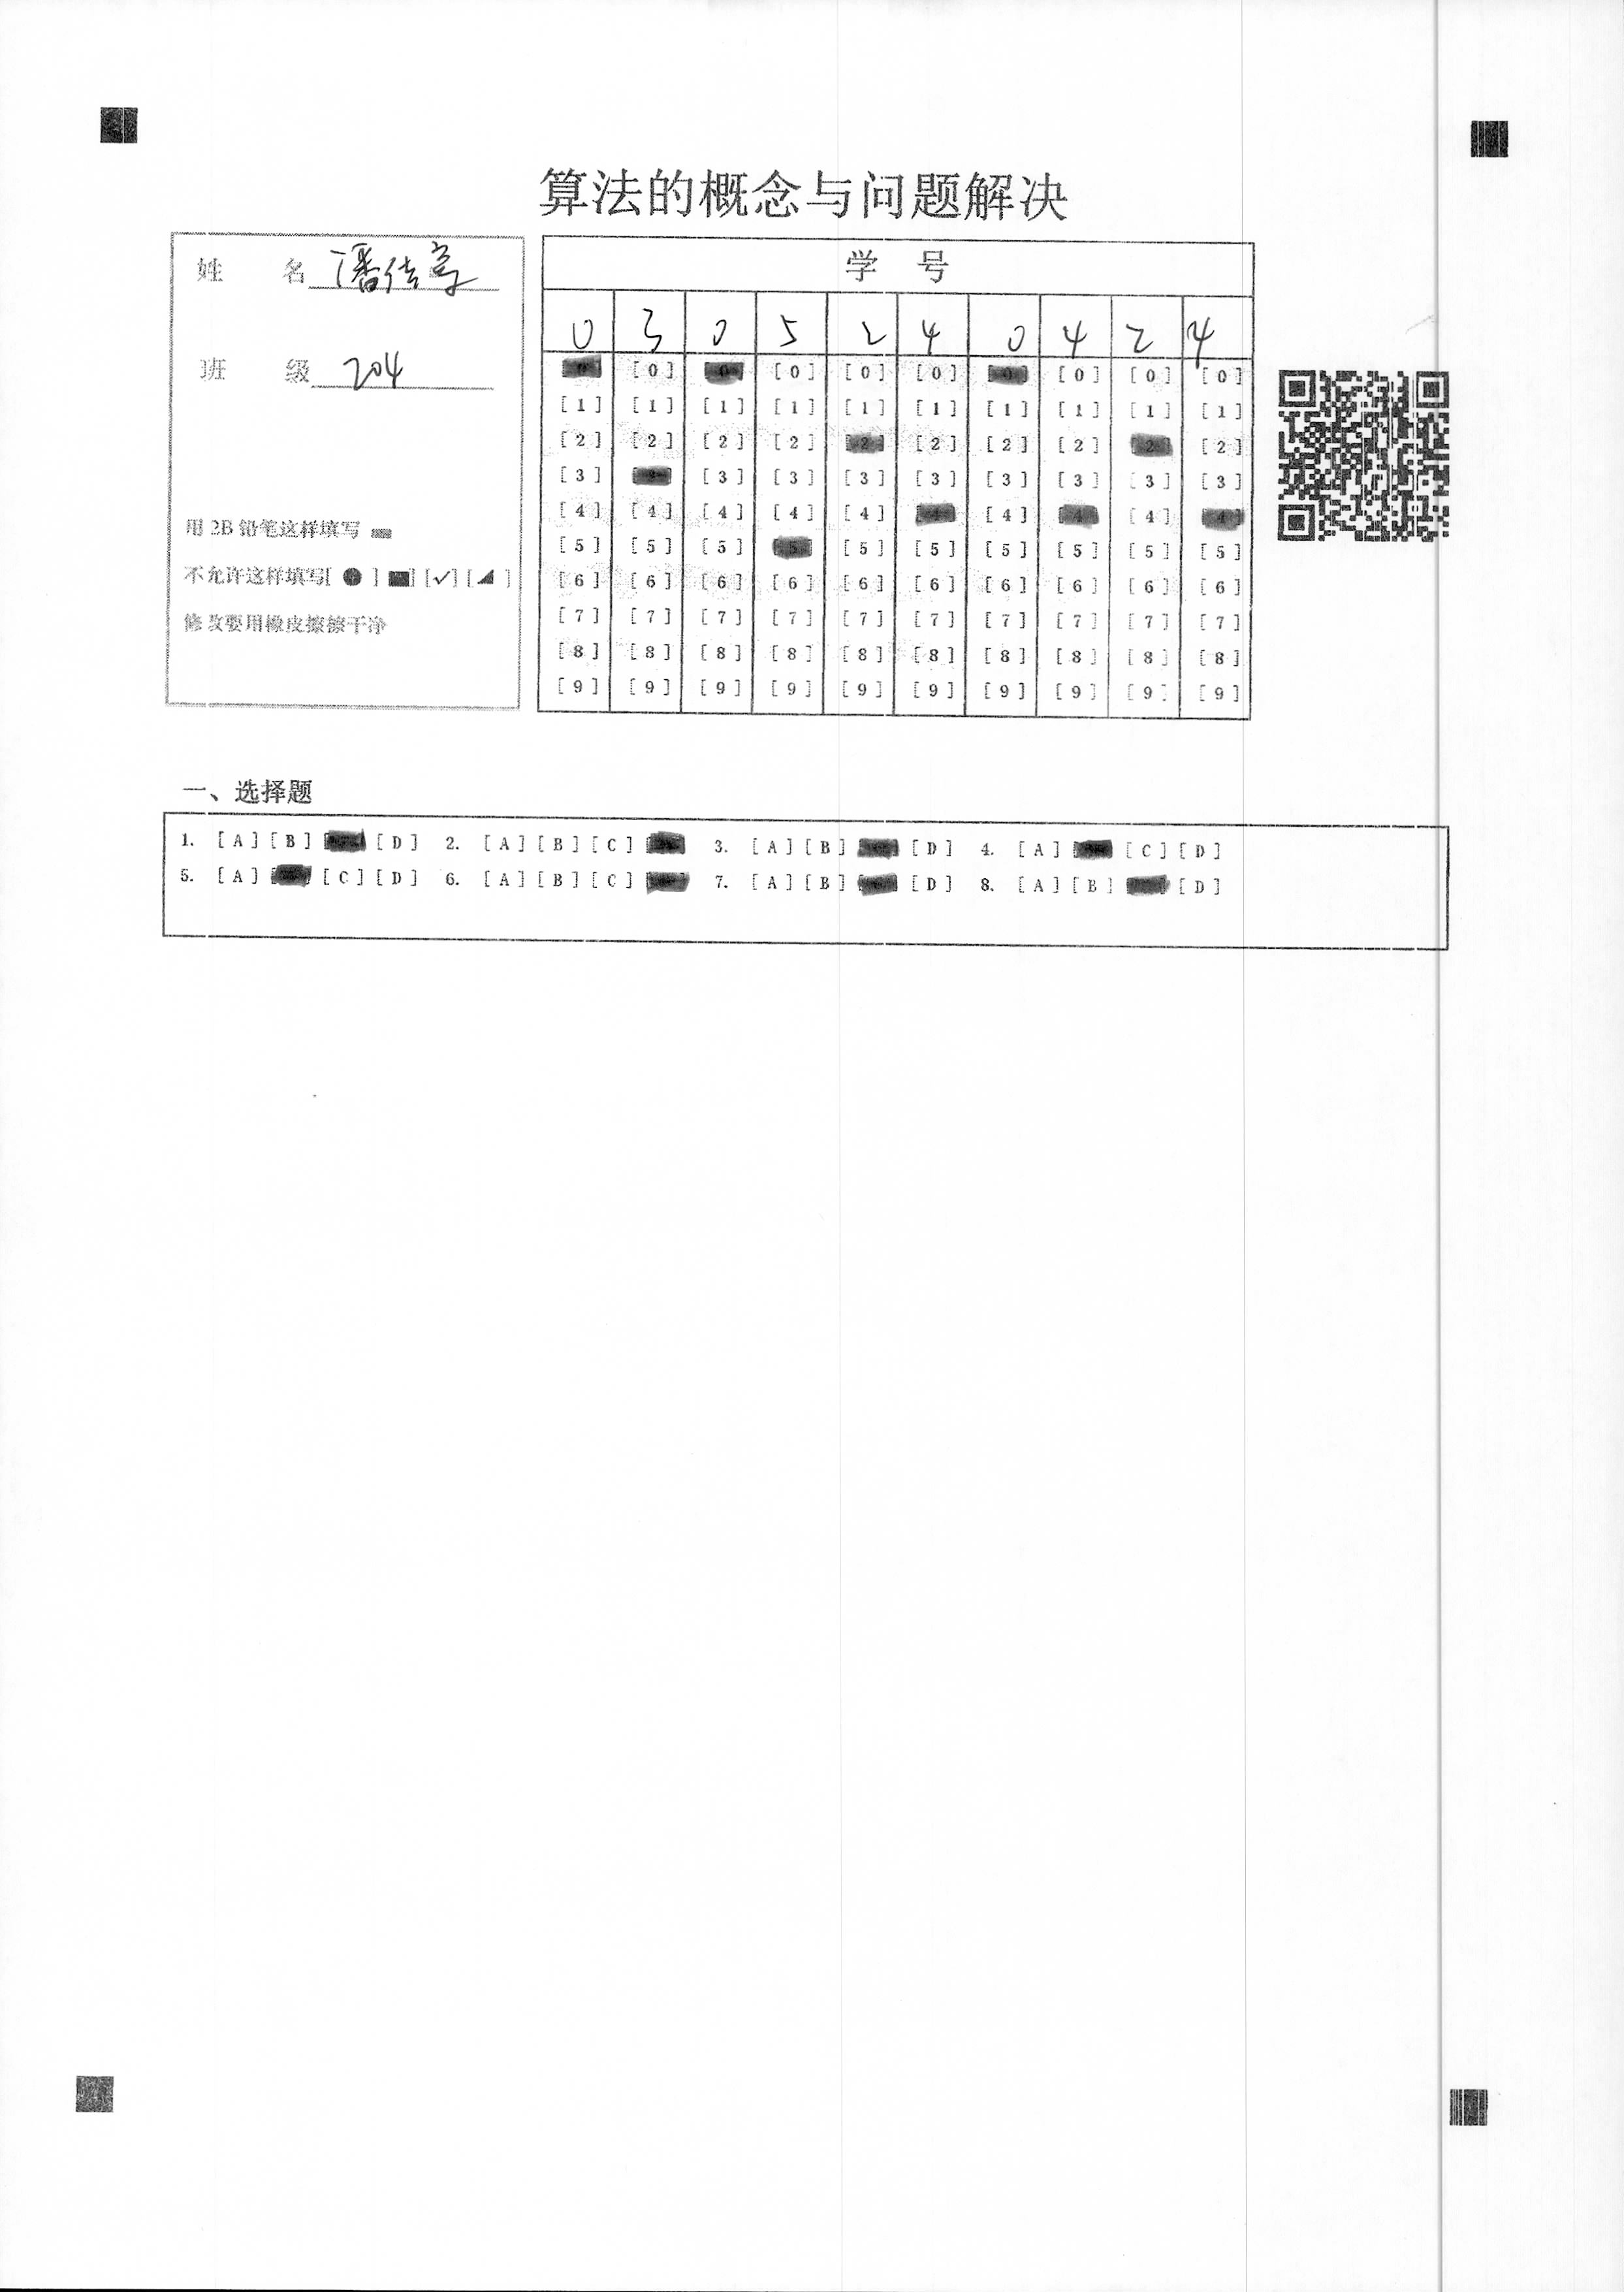 算法的概念与问题解决
姓 名 潘佳享
班 级 204
用 2B 铅笔这样填写
不允许这样填写[ ● ] [■] [✓] [◢ ]
修改要用橡皮擦擦干净
学 号
0 3 0 5 2 4 0 4 2 4
[0] [0] [0] [0] [0] [0] [0] [0] [0] [0]
[1] [1] [1] [1] [1] [1] [1] [1] [1] [1]
[2] [2] [2] [2] [2] [2] [2] [2] [2] [2]
[3] [3] [3] [3] [3] [3] [3] [3] [3]
[4] [4] [4] [4] [4] [4] [4] [4] [4] [4]
[5] [5] [5] [5] [5] [5] [5] [5] [5] [5]
[6] [6] [6] [6] [6] [6] [6] [6] [6] [6]
[7] [7] [7] [7] [7] [7] [7] [7] [7] [7]
[8] [8] [8] [8] [8] [8] [8] [8] [8] [8]
[9] [9] [9] [9] [9] [9] [9] [9] [9] [9]
一、选择题
1. [A] [B] [D] 2. [A] [B] [C] 3. [A] [B] [D] 4. [A] [C] [D]
5. [A] [C] [D] 6. [A] [B] [C] 7. [A] [B] [D] 8. [A] [B] [D]